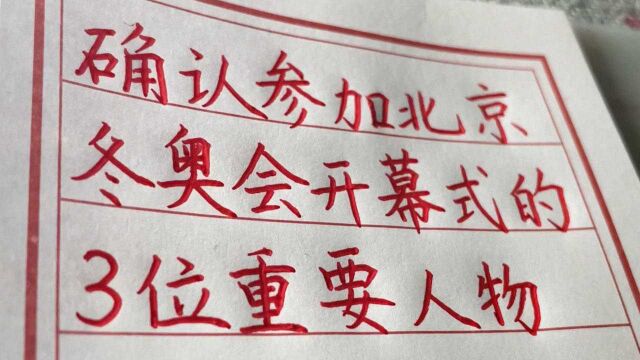 确认参加北京
冬奥会开幕式的
3位重要人物